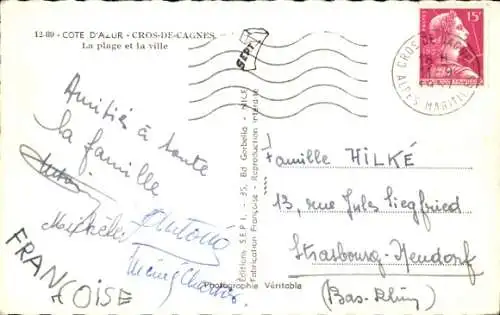 12-89 - COTE D'AZUR - CROS-DE-CAGNES
La plage et la ville
SEPT
15F
CROS-DE-CAGNES
ALPES MARITIMES
Amitiés à toute
la famille
Michèle
Antonia
FRANÇOISE
Editions SEPT - 35, Bd Gorbella - NICE
Fabrication Française - Reproduction interdite
Photographie Véritable
Famille HILKÉ
13, rue Jules Siegfried
Strasbourg-Neudorf
(Bas-Rhin)